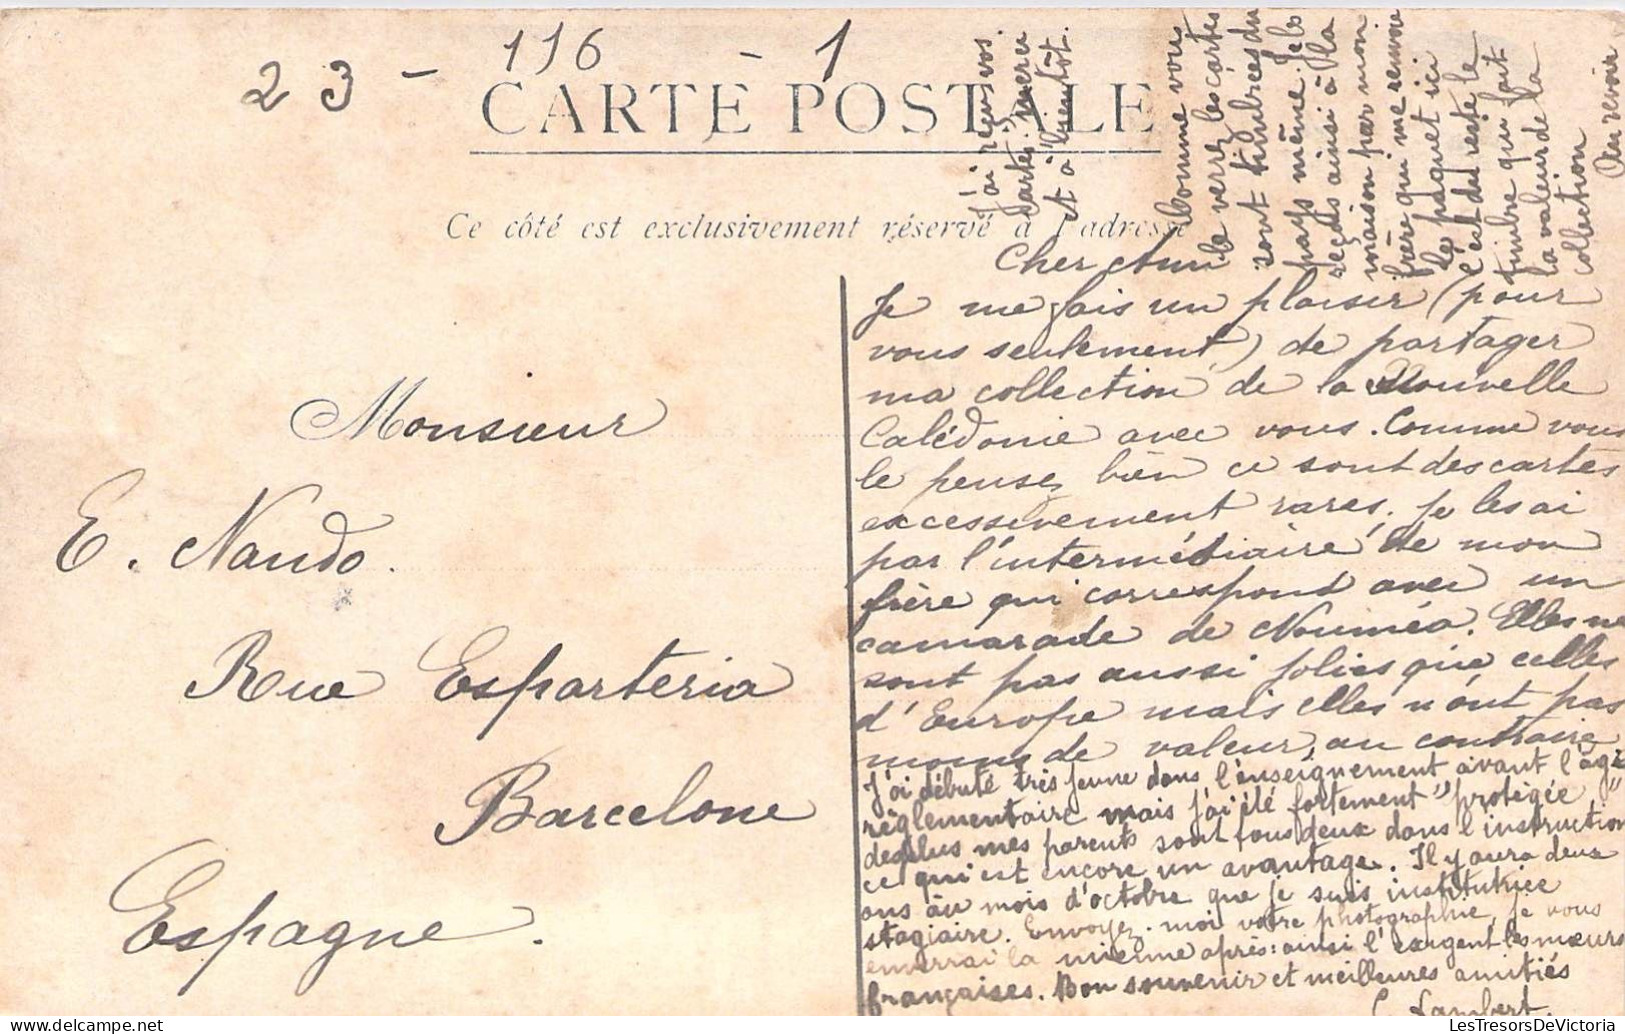 23 - 116 - 1
CARTE POSTALE
Ce côté est exclusivement réservé à l'adresse
Monsieur
E. Nando.
Rue Esparteria
Barcelone
Espagne.
Cher Ami
Je me fais un plaisir (pour
vous seulement) de partager
ma collection de la Nouvelle
Calédonie avec vous. Comme vous
le pensez bien ce sont des cartes
excessivement rares. Je les ai
par l'intermédiaire de mon
frère qui correspond avec un
camarade de Nouméa. Elles ne
sont pas aussi jolies que celles
d'Europe mais elles n'ont pas
moins de valeur, au contraire
J'ai débuté très jeune dans l'enseignement avant l'âge
réglementaire mais j'ai été fortement "protégée"
de plus mes parents sont tous deux dans l'instruction
ce qui est encore un avantage. Il y aura deux
ans au mois d'octobre que je suis institutrice
stagiaire. Envoyez-moi votre photographie, je vous
enverrai la mienne après: ainsi l'exigent les mœurs
françaises. Bon souvenir et meilleures amitiés
C. Lambert.
J'ai reçu vos
cartes, merci
et à bientôt.
Comme vous
le verrez les cartes
sont timbrées du
pays même. Je les
reçois ainsi à la
maison par mon
frère qui me renvoie
le paquet ici
c'est du reste le
timbre qui fait
la valeur de la
collection
Au revoir
LesTresorsDeVictoria